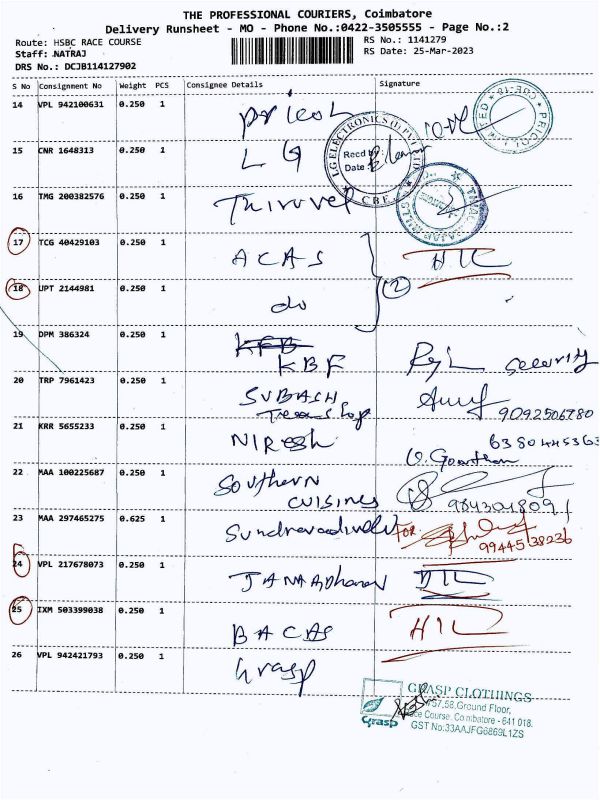 THE PROFESSIONAL COURIERS, Coimbatore
Delivery Runsheet - MO - Phone No.:0422-3505555 - Page No.:2
Route: HSBC RACE COURSE
RS No.: 1141279
Staff: NATRAJ
RS Date: 25-Mar-2023
DRS No.: DCJB114127902
S No Consignment No Weight PCS Consignee Details Signature
14 VPL 942100631 0.250 1 Pricol
PRICOL LIMITED
15 CNR 1648313 0.250 1 LG
LG ELECTRONICS (I) PVT LTD
Recd by:
Date:
CBE
16 TMG 200382576 0.250 1 Thiruvel
17 TCG 40429103 0.250 1 ACAS HIL
18 UPT 2144981 0.250 1 do (2)
19 DPM 386324 0.250 1 KFB
KBF security
20 TRP 7961423 0.250 1 SUBASH
9092506780
21 KRR 5655233 0.250 1 NIRESH
22 MAA 100225687 0.250 1 Southern
CUISINES
23 MAA 297465275 0.625 1 Sundravadivelu FOR
9944538236
24 VPL 217678073 0.250 1 JANARDhanan HIL
25 IXM 503399038 0.250 1 BACAS HIL
26 VPL 942421793 0.250 1 Grasp
GRASP CLOTHINGS
57,58,Ground Floor,
Race Course, Coimbatore - 641 018.
Grasp GST No:33AAJFG6869L1ZS